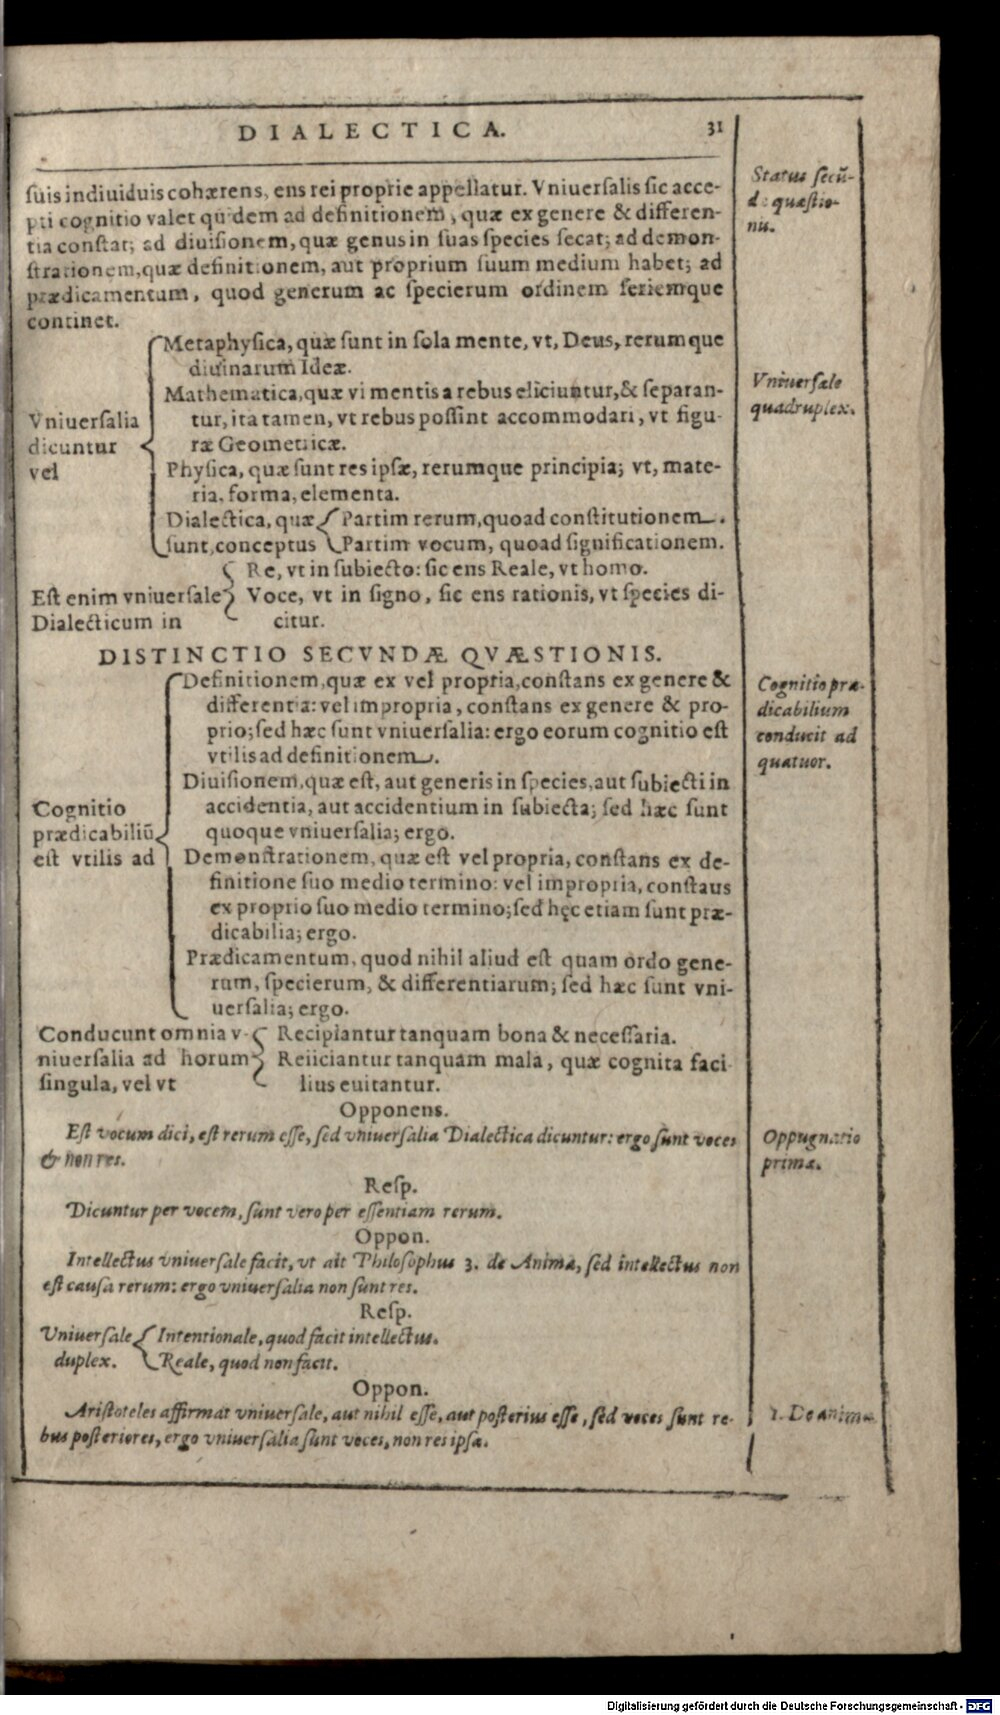 DIALECTICA. 31
suis indiuiduis cohærens, ens rei proprie appellatur. Vniuersalis sic acce-
pti cognitio valet quidem ad definitionem, quæ ex genere & differen-
tia constat; ad diuisionem, quæ genus in suas species secat; ad demon-
strationem, quæ definitionem, aut proprium suum medium habet; ad
prædicamentum, quod generum ac specierum ordinem seriemque
continet.
Status secũ-
dæ quæstio-
nis.
Vniuersalia
dicuntur
vel
Metaphysica, quæ sunt in sola mente, vt, Deus, rerumque
diuinarum Ideæ.
Mathematica, quæ vi mentis a rebus eliciuntur, & separan-
tur, ita tamen, vt rebus possint accommodari, vt figu-
ræ Geometricæ.
Physica, quæ sunt res ipsæ, rerumque principia; vt, mate-
ria, forma, elementa.
Dialectica, quæ
sunt, conceptus
Partim rerum, quoad constitutionem.
Partim vocum, quoad significationem.
Vniuersale
quadruplex.
Est enim vniuersale
Dialecticum in
Re, vt in subiecto: sic ens Reale, vt homo.
Voce, vt in signo, sic ens rationis, vt species di-
citur.
DISTINCTIO SECVNDÆ QVÆSTIONIS.
Cognitio
prædicabiliũ
est vtilis ad
Definitionem, quæ ex vel propria, constans ex genere &
differentia: vel impropria, constans ex genere & pro-
prio; sed hæc sunt vniuersalia: ergo eorum cognitio est
vtilis ad definitionem.
Diuisionem, quæ est, aut generis in species, aut subiecti in
accidentia, aut accidentium in subiecta; sed hæc sunt
quoque vniuersalia; ergo.
Demonstrationem, quæ est vel propria, constans ex de-
finitione suo medio termino: vel impropria, constaus
ex proprio suo medio termino; sed hęc etiam sunt præ-
dicabilia; ergo.
Prædicamentum, quod nihil aliud est quam ordo gene-
rum, specierum, & differentiarum; sed hæc sunt vni-
uersalia; ergo.
Cognitio præ-
dicabilium
conducit ad
quatuor.
Conducunt omnia v-
niuersalia ad horum
singula, vel vt
Recipiantur tanquam bona & necessaria.
Reiiciantur tanquam mala, quæ cognita faci
lius euitantur.
Opponens.
Est vocum dici, est rerum esse, sed vniuersalia Dialectica dicuntur: ergo sunt voces
& non res.
Oppugnatio
prima.
Resp.
Dicuntur per vocem, sunt vero per essentiam rerum.
Oppon.
Intellectus vniuersale facit, vt ait Philosophus 3. de Anima, sed intellectus non
est causa rerum: ergo vniuersalia non sunt res.
Resp.
Vniuersale
duplex.
Intentionale, quod facit intellectus.
Reale, quod non facit.
Oppon.
Aristoteles affirmat vniuersale, aut nihil esse, aut posterius esse, sed voces sunt re-
bus posteriores, ergo vniuersalia sunt voces, non res ipsæ.
1. De anima.
Digitalisierung gefördert durch die Deutsche Forschungsgemeinschaft - DFG